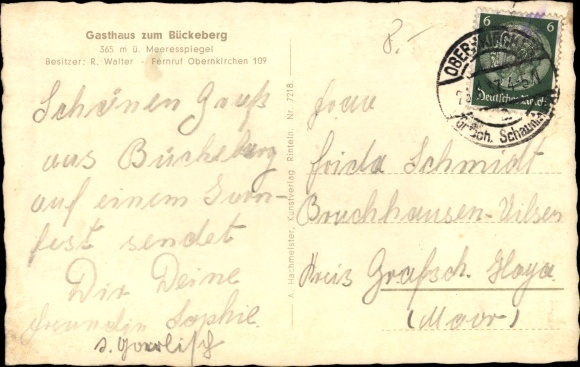 Gasthaus zum Bückeberg
365 m ü. Meeresspiegel
Besitzer: R. Walter - Fernruf Obernkirchen 109
Schönen Gruß
aus Bückeberg
auf einem
fest sendet
Dir Deine
freundin Sophie
8.-
A. Hachmeister, Kunstverlag, Rinteln. Nr. 7218.
6 6
Deutsches Reich
Grafsch. Schaumb
Frau
Frida Schmidt
Bruchhausen-Vilsen
Kreis Grafsch. Hoya
(Moor)